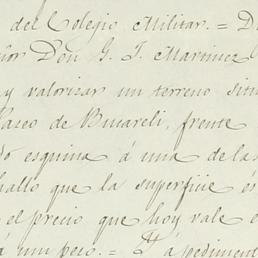 del Colegio Militar. = D
ñor Don G. J. Martinez
y valorizar un terreno situ
Paseo de Bucareli, frente
do esquina á una de las
hallo que la superficie és
el precio que hoy vale e
á un peso. = Y á pedimento